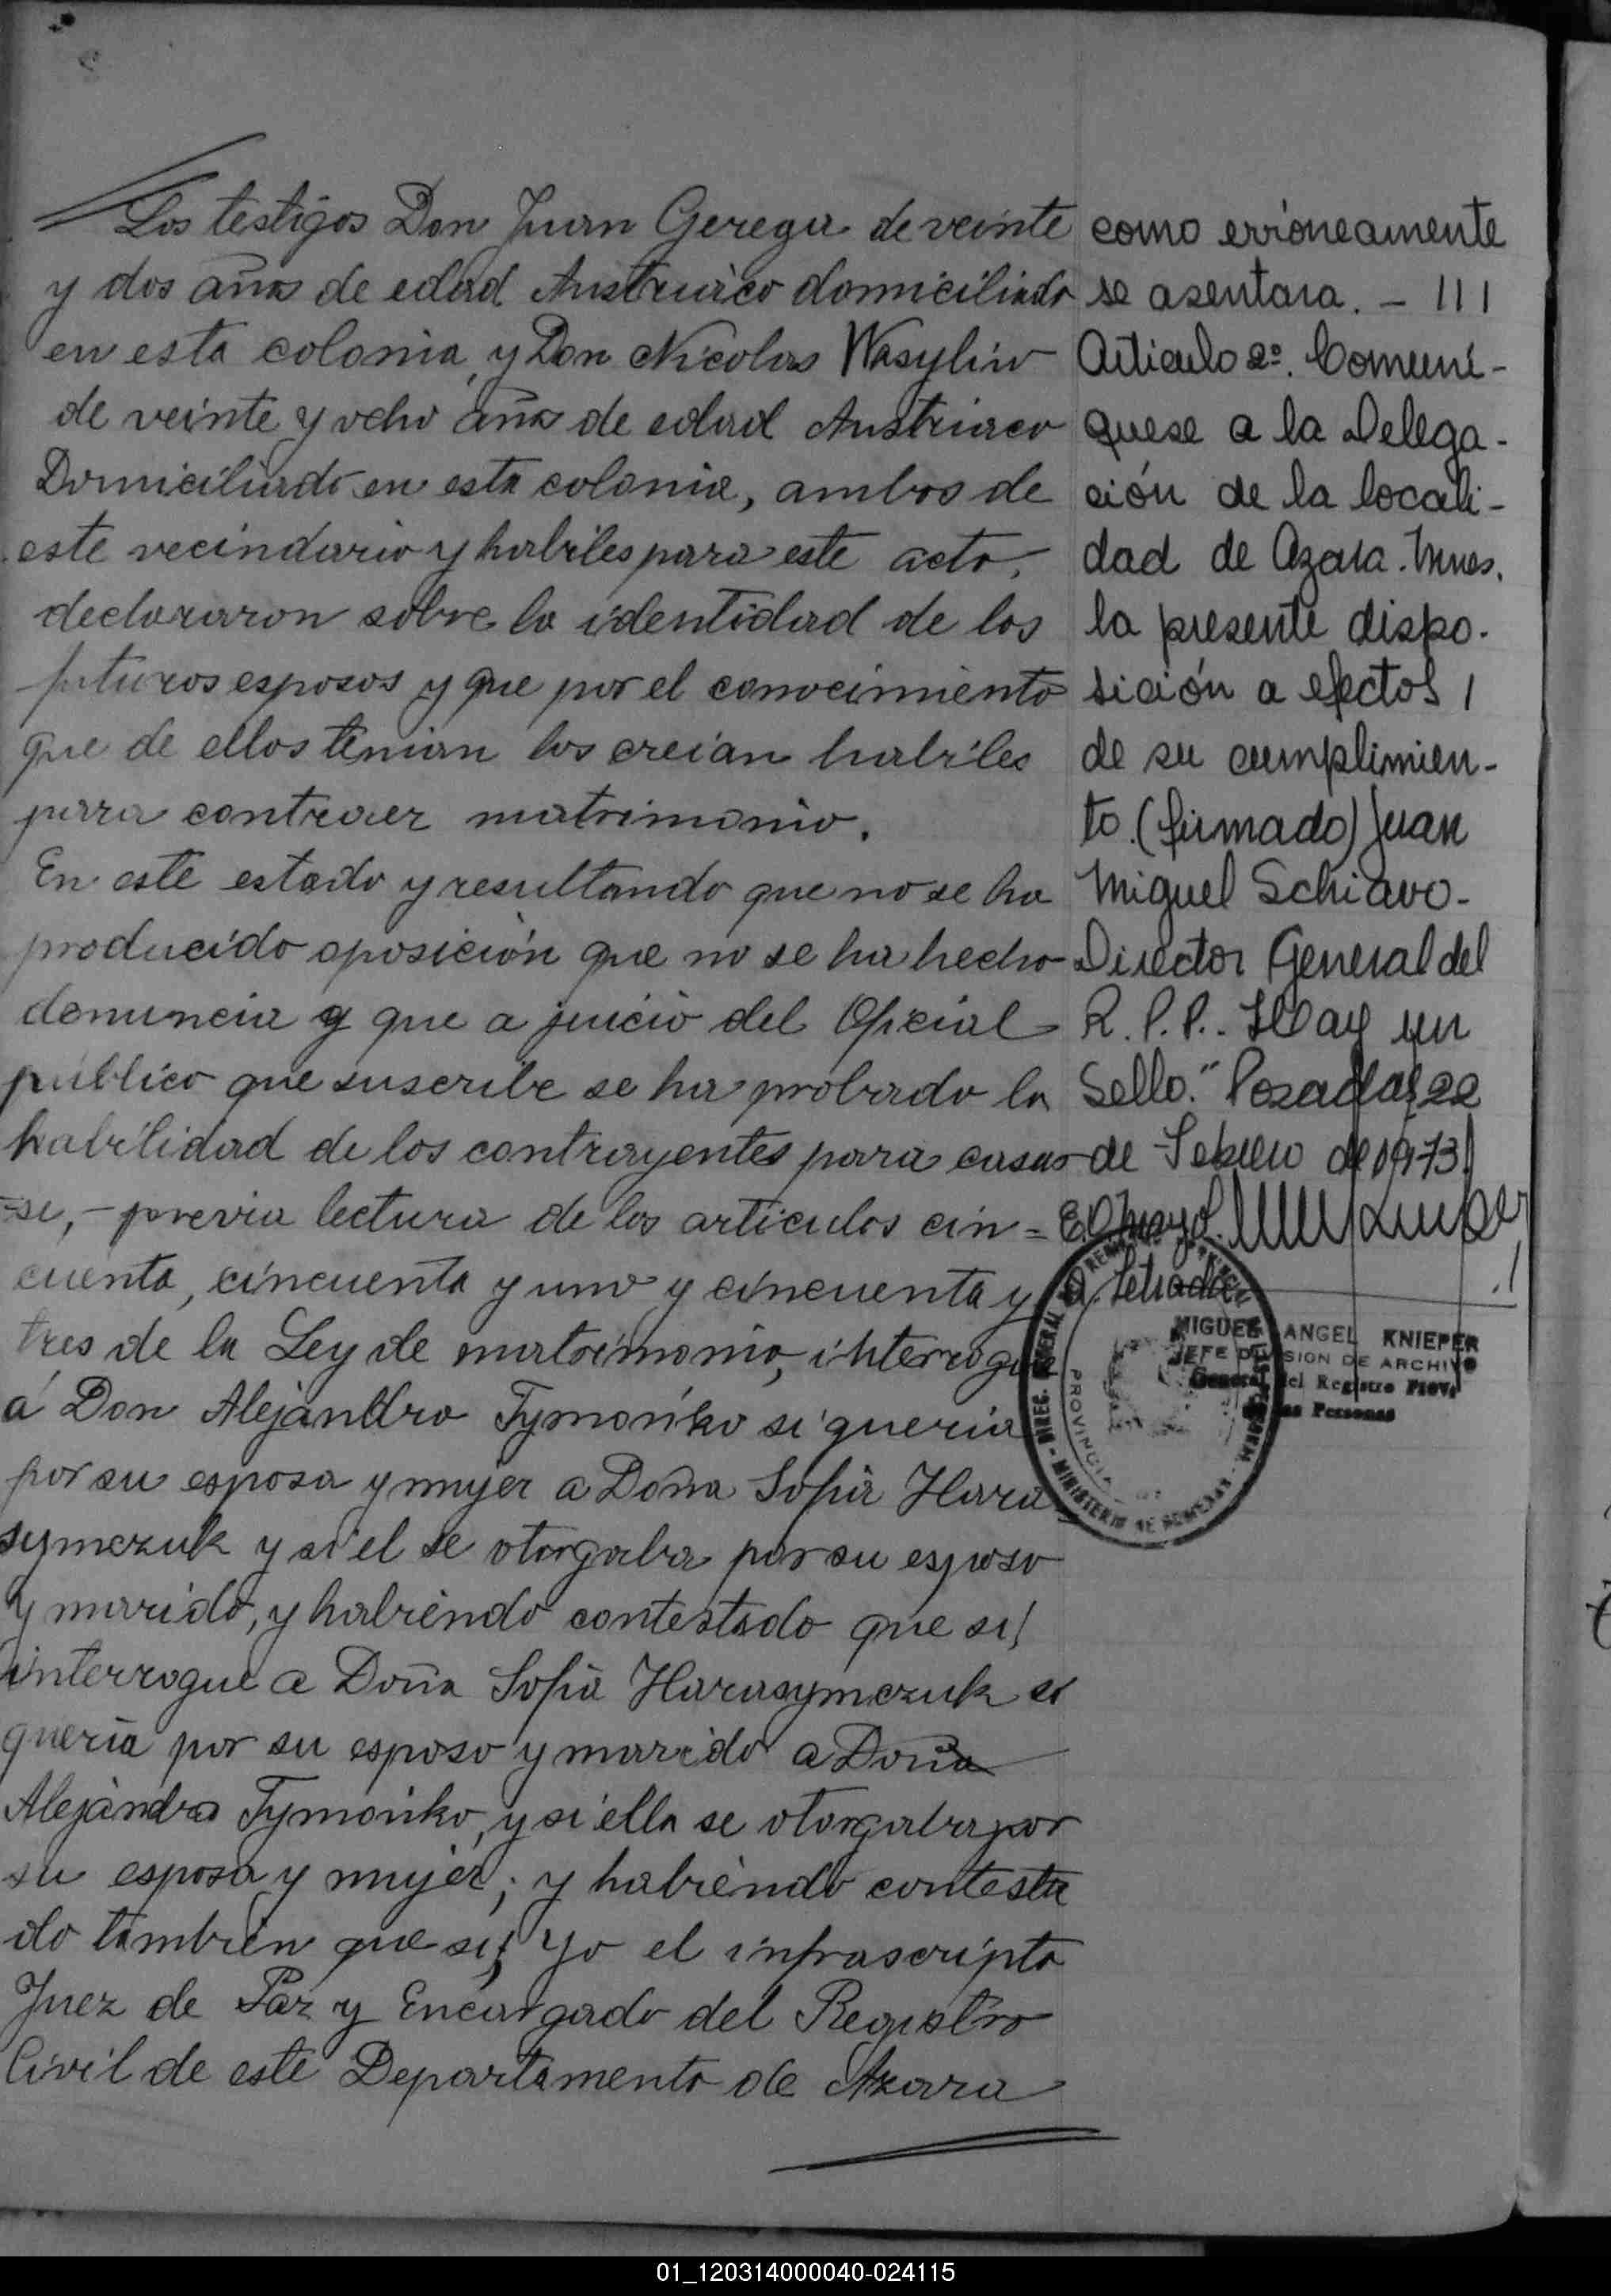 Los testigos Don Juan Gerega de veinte
y dos años de edad Austriaco domiciliado
en esta colonia, y Don Nicolas Wasyliw
de veinte y ocho años de edad Austriaco
Domiciliado en esta colonia, ambos de
este vecindario y habiles para este acto,
declararon sobre la identidad de los
futuros esposos y que por el conocimiento
que de ellos tenian los creian habiles
para contraer matrimonio.
En este estado y resultando que no se ha
producido oposición que no se ha hecho
denuncia y que a juicio del Oficial
público que suscribe se ha probado la
habilidad de los contrayentes para casar
=se, - previa lectura de los articulos cin =
cuenta, cincuenta y uno y cincuenta y
tres de la Ley de matrimonio, interrogue
á Don Alejandro Tymońko si queria
por su esposa y mujer a Doña Sofia Hara
symczuk y si el se otorgaba por su esposo
y marido, y habiendo contestado que si,
interrogue a Doña Sofia Harasymczuk si
queria por su esposo y marido a Doña
Alejandro Tymońko, y si ella se otorgaba por
su esposa y mujer; y habiendo contesta
do tambien que si; Yo el infrascripto
Juez de Paz y Encargado del Registro
Civil de este Departamento de Azara
como erróneamente
se asentara. - III
Artículo 2º. Comuní-
quese a la Delega-
ción de la locali-
dad de Azara. Mnes.
la presente dispo-
sición a efectos
de su cumplimien-
to. (firmado) Juan
Miguel Schiavo-
Director General del
R. P. P.. Hay un
Sello." Posadas, 22
de Febrero de 1973
MIGUEL ANGEL KNIEPER
JEFE DIVISION DE ARCHIVO
General del Registro Prov.
las Personas
PROVINCIA
01_120314000040-024115